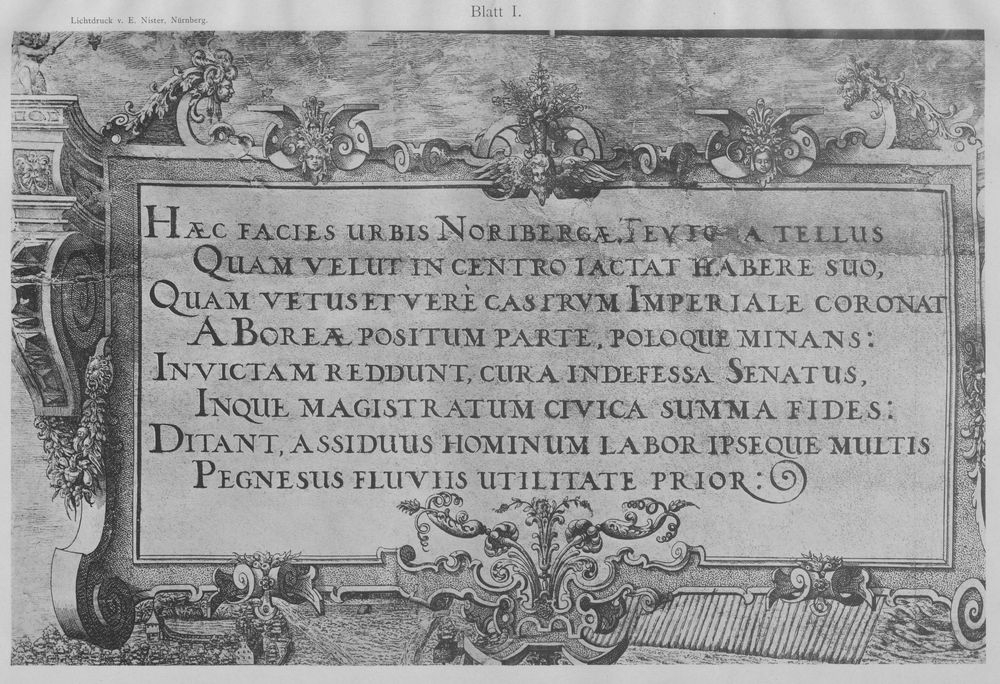 Blatt I.
Lichtdruck v. E. Nister, Nürnberg.
HÆC FACIES URBIS NORIBERGÆ, TELLUS
QUAM VELUT IN CENTRO IACTAT HABERE SUO,
QUAM VETUS ET VERÈ CASTRVM IMPERIALE CORONAT
A BOREÆ POSITUM PARTE, POLOQUE MINANS:
INVICTAM REDDUNT, CURA INDEFESSA SENATUS,
INQUE MAGISTRATUM CIVICA SUMMA FIDES:
DITANT, ASSIDUUS HOMINUM LABOR IPSEQUE MULTIS
PEGNESUS FLUVIIS UTILITATE PRIOR: